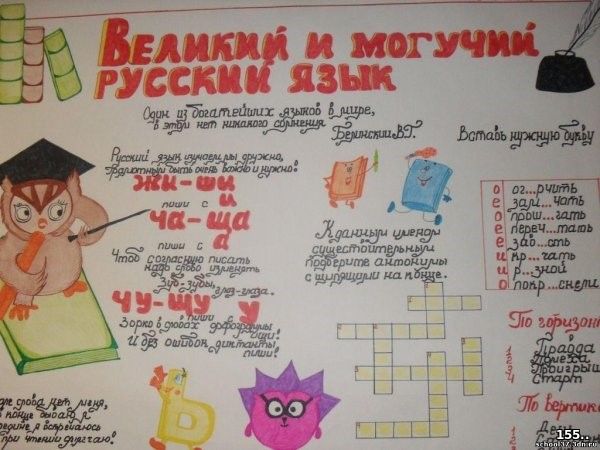 Великий и могучий
русский язык
Один из богатейших языков в мире,
в этом нет никакого сомнения
Белинский В.Г.
Вставь нужную букву
Русский язык изучаем мы дружно,
грамотным быть очень важно и нужно!
жи-ши
пиши с и
ча-ща
пиши с а
Чтоб согласную писать
надо слово изменять
Зуб-зубы, глаз-глаза.
чу-щу
пиши у
Зорко в словах орфограммы
ищи!
И без ошибок диктанты
пиши!
К данным именам
существительным
подберите антонимы
с шипящими на конце.
ог...рчить
зам...чать
прош...гать
переч...тать
заб...сть
кр...чать
р...зной
покр...снели
По горизон
1 Правда
2
3 Проигрыш
4 Старт
По вертик
1 День
слова нет меня,
в конце бываю, я
я встречаюсь
при чтении
Ь
155..
school37.3dn.ru